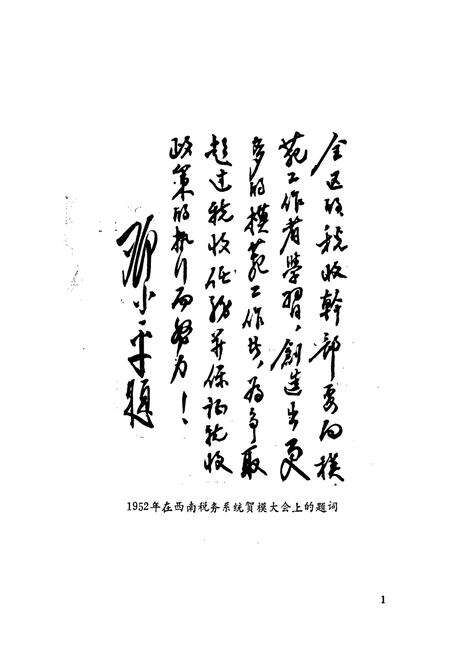 全区的税收幹部要向模
范工作者學習，創造出更
多的模范工作者，为争取
超过税收任務并保証税收
政策的执行而努力！
邓小平題
1952年在西南税务系统賀模大会上的题词
1